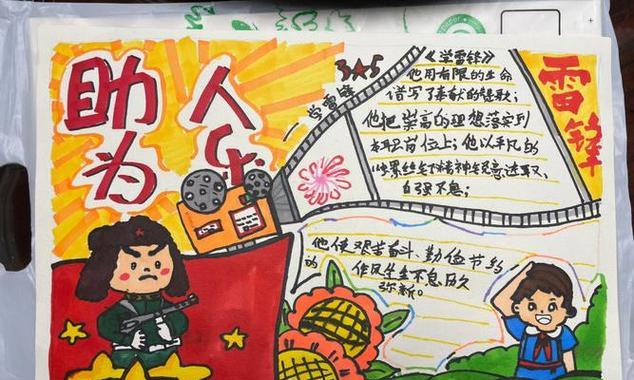 助人为乐
学雷锋
3★5
《学雷锋》
他用有限的生命
谱写了奉献的赞歌；
他把崇高的理想落实到
本职岗位上；他以平凡的
进取、
自强不息；
雷锋
他使艰苦奋斗、勤俭节约
的作风生生不息历久
弥新。